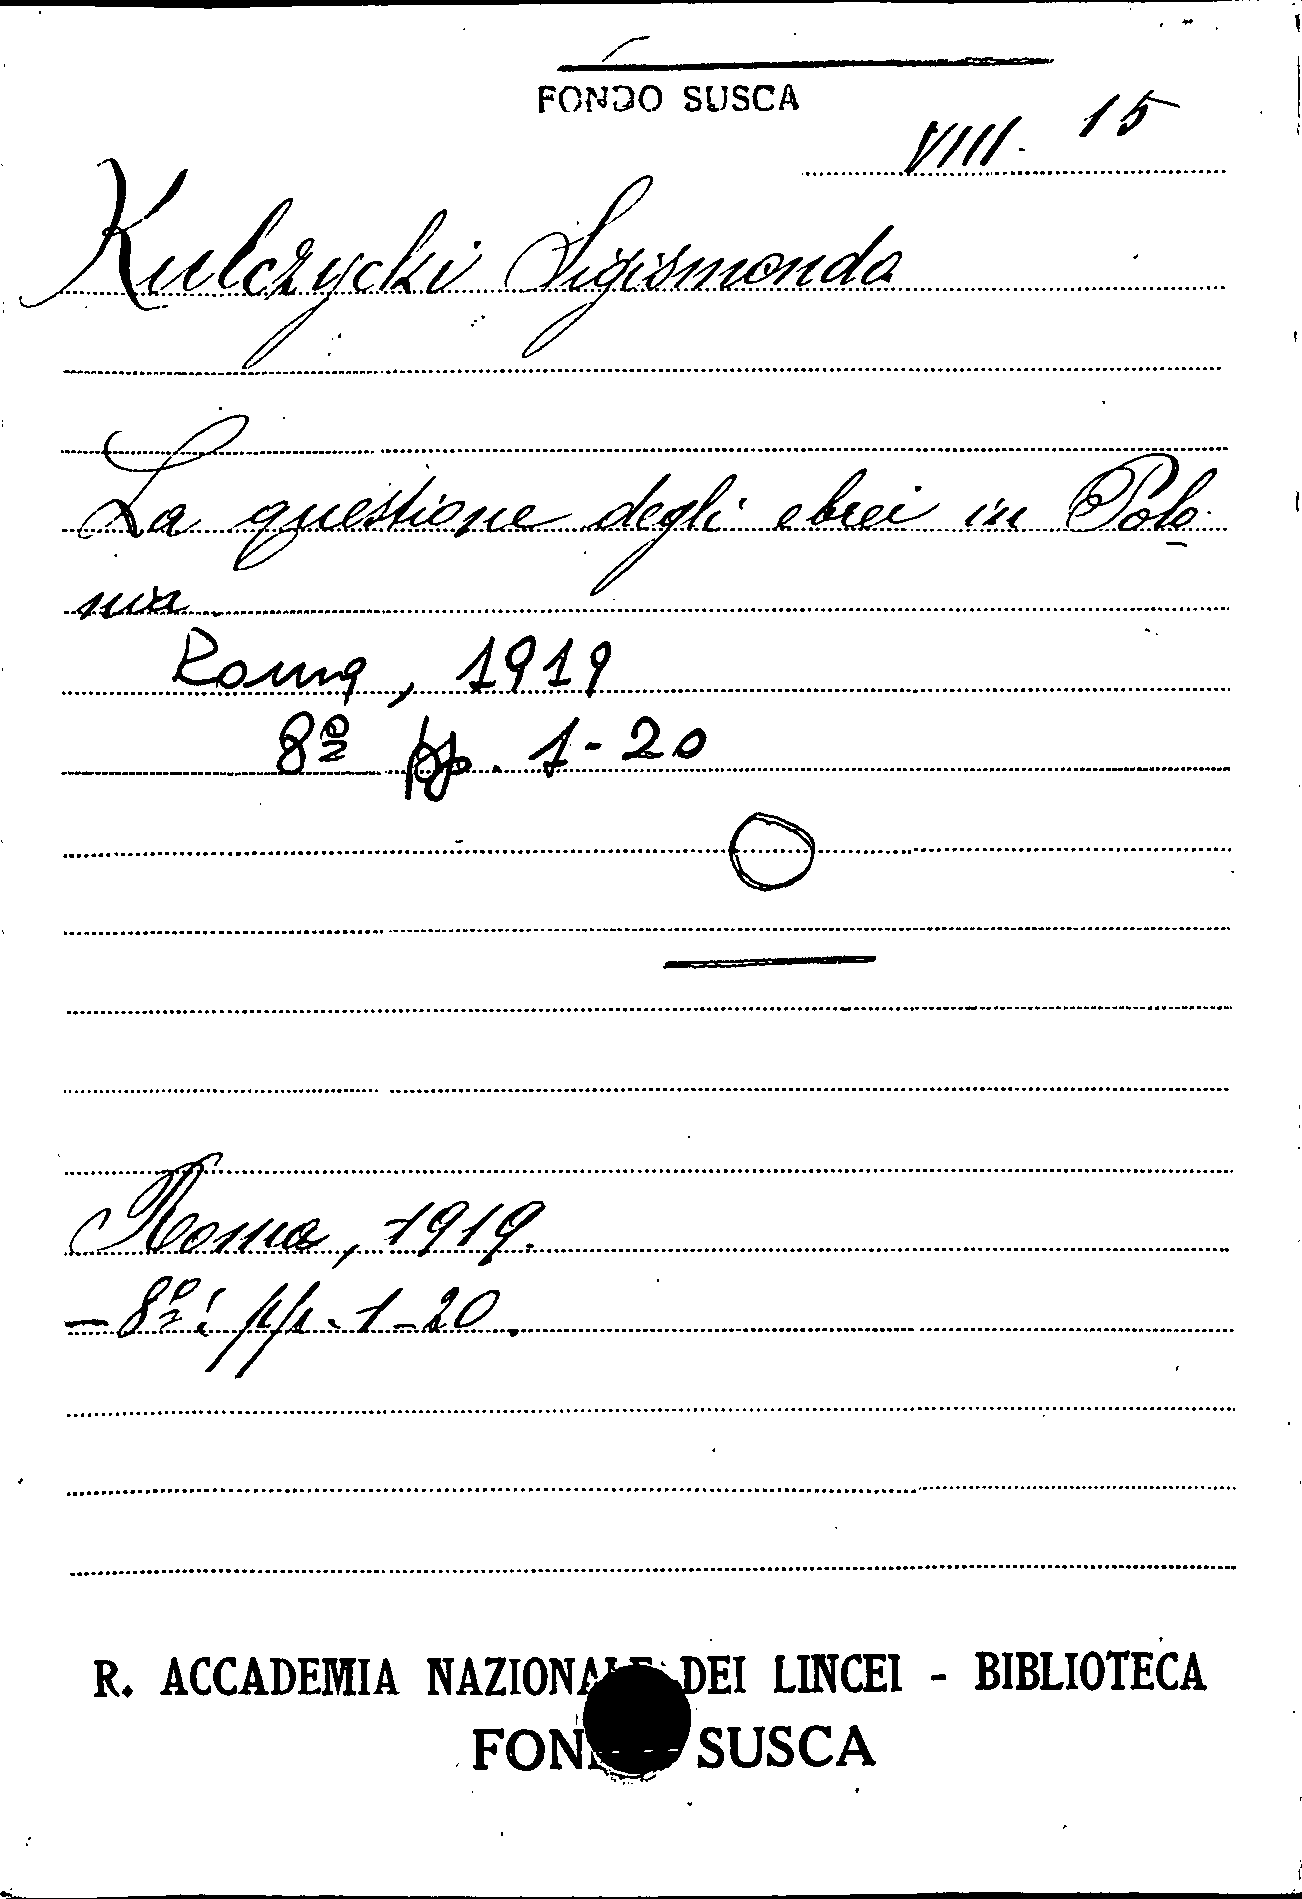 FONDO SUSCA
VIII. 15
Kulczycki Sigismonda
La questione degli ebrei in Polo
nia.
Roma, 1919
8º pp. 1-20
Roma, 1919.
- 8º; pp. 1-20.
R. ACCADEMIA NAZIONALE DEI LINCEI - BIBLIOTECA
FONDO SUSCA